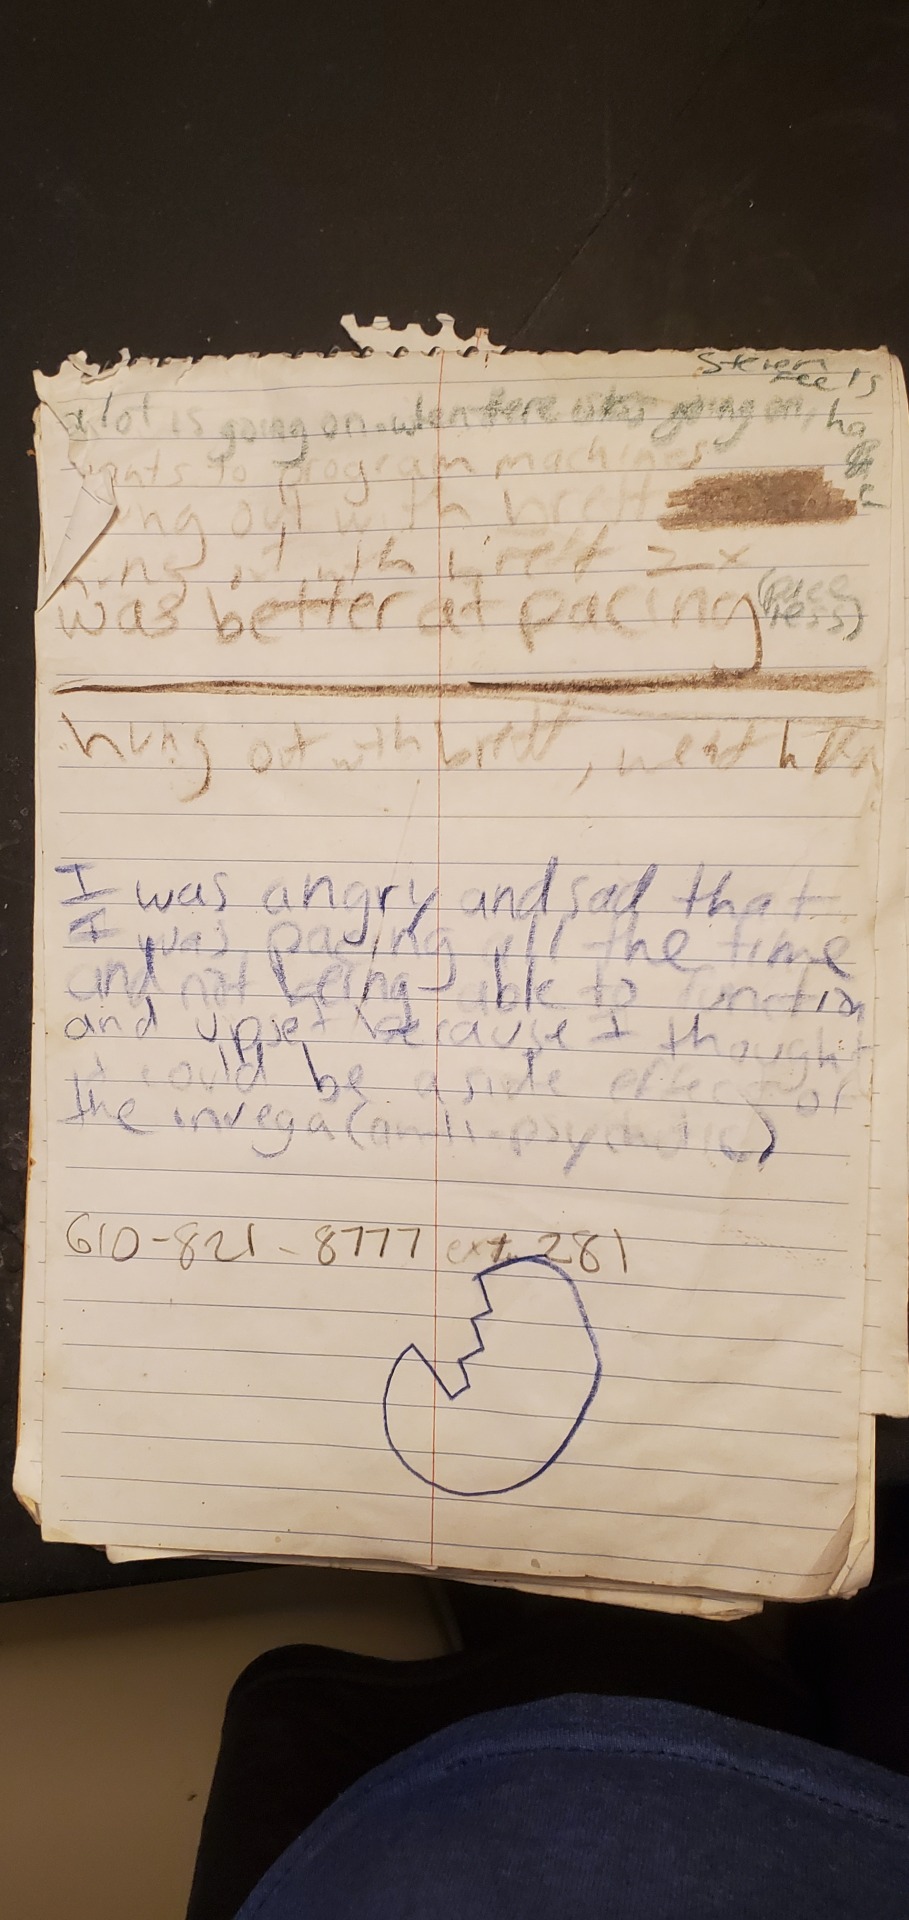 feels
alot is going on when there is going on, ha
to program machines
out with brett
hung out with brett 2x
was better at pacing (pace
less)
hung out with brett, went
I was angry and sad that
I was pacing all the time
and not being able to function
and upset because I thought
it could be a side effect of
the invega (anti-psychotic)
610-821-8777 ext. 281